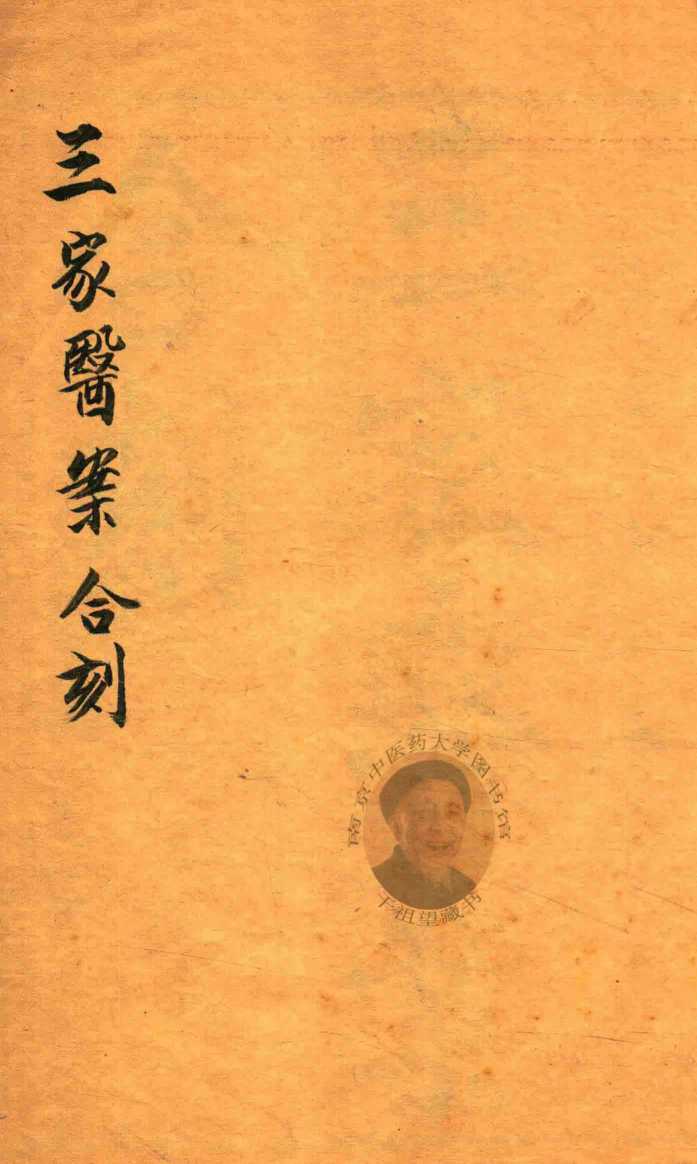 三家醫案合刻
南京中医药大学图书馆
干祖望藏书